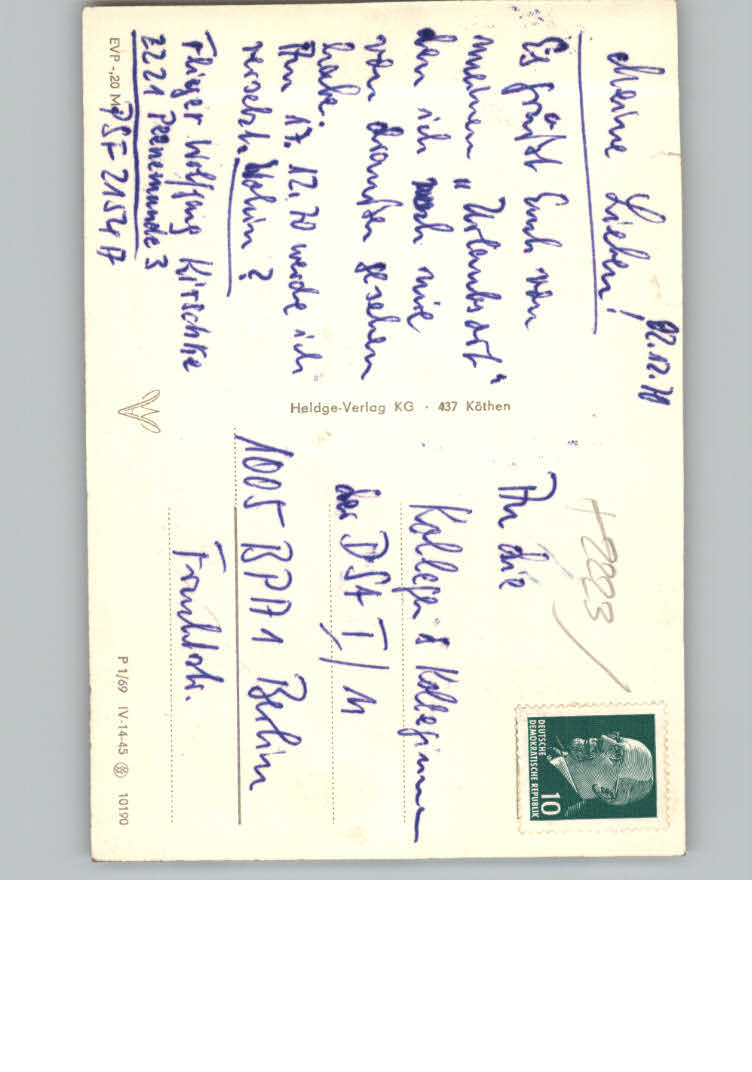 02.12.70
Meine Lieben!
Es grüßt Euch von
meinem "Urlaubsort"
den ich noch nie
von draußen gesehen
habe.
Am 17.12.70 werde ich
versetzt. Wohin?
Flieger Wolfgang Kirschke
2221 Peenemünde 3
PSF 2154 A
EVP -,20 M
Heldge-Verlag KG · 437 Köthen
+2223
An die
Kollegen & Kolleginnen
der DSt I/11
1005 BPA 1 Berlin
Fruchtstr.
DEUTSCHE
DEMOKRATISCHE REPUBLIK
10
P 1/69 IV-14-45 10190